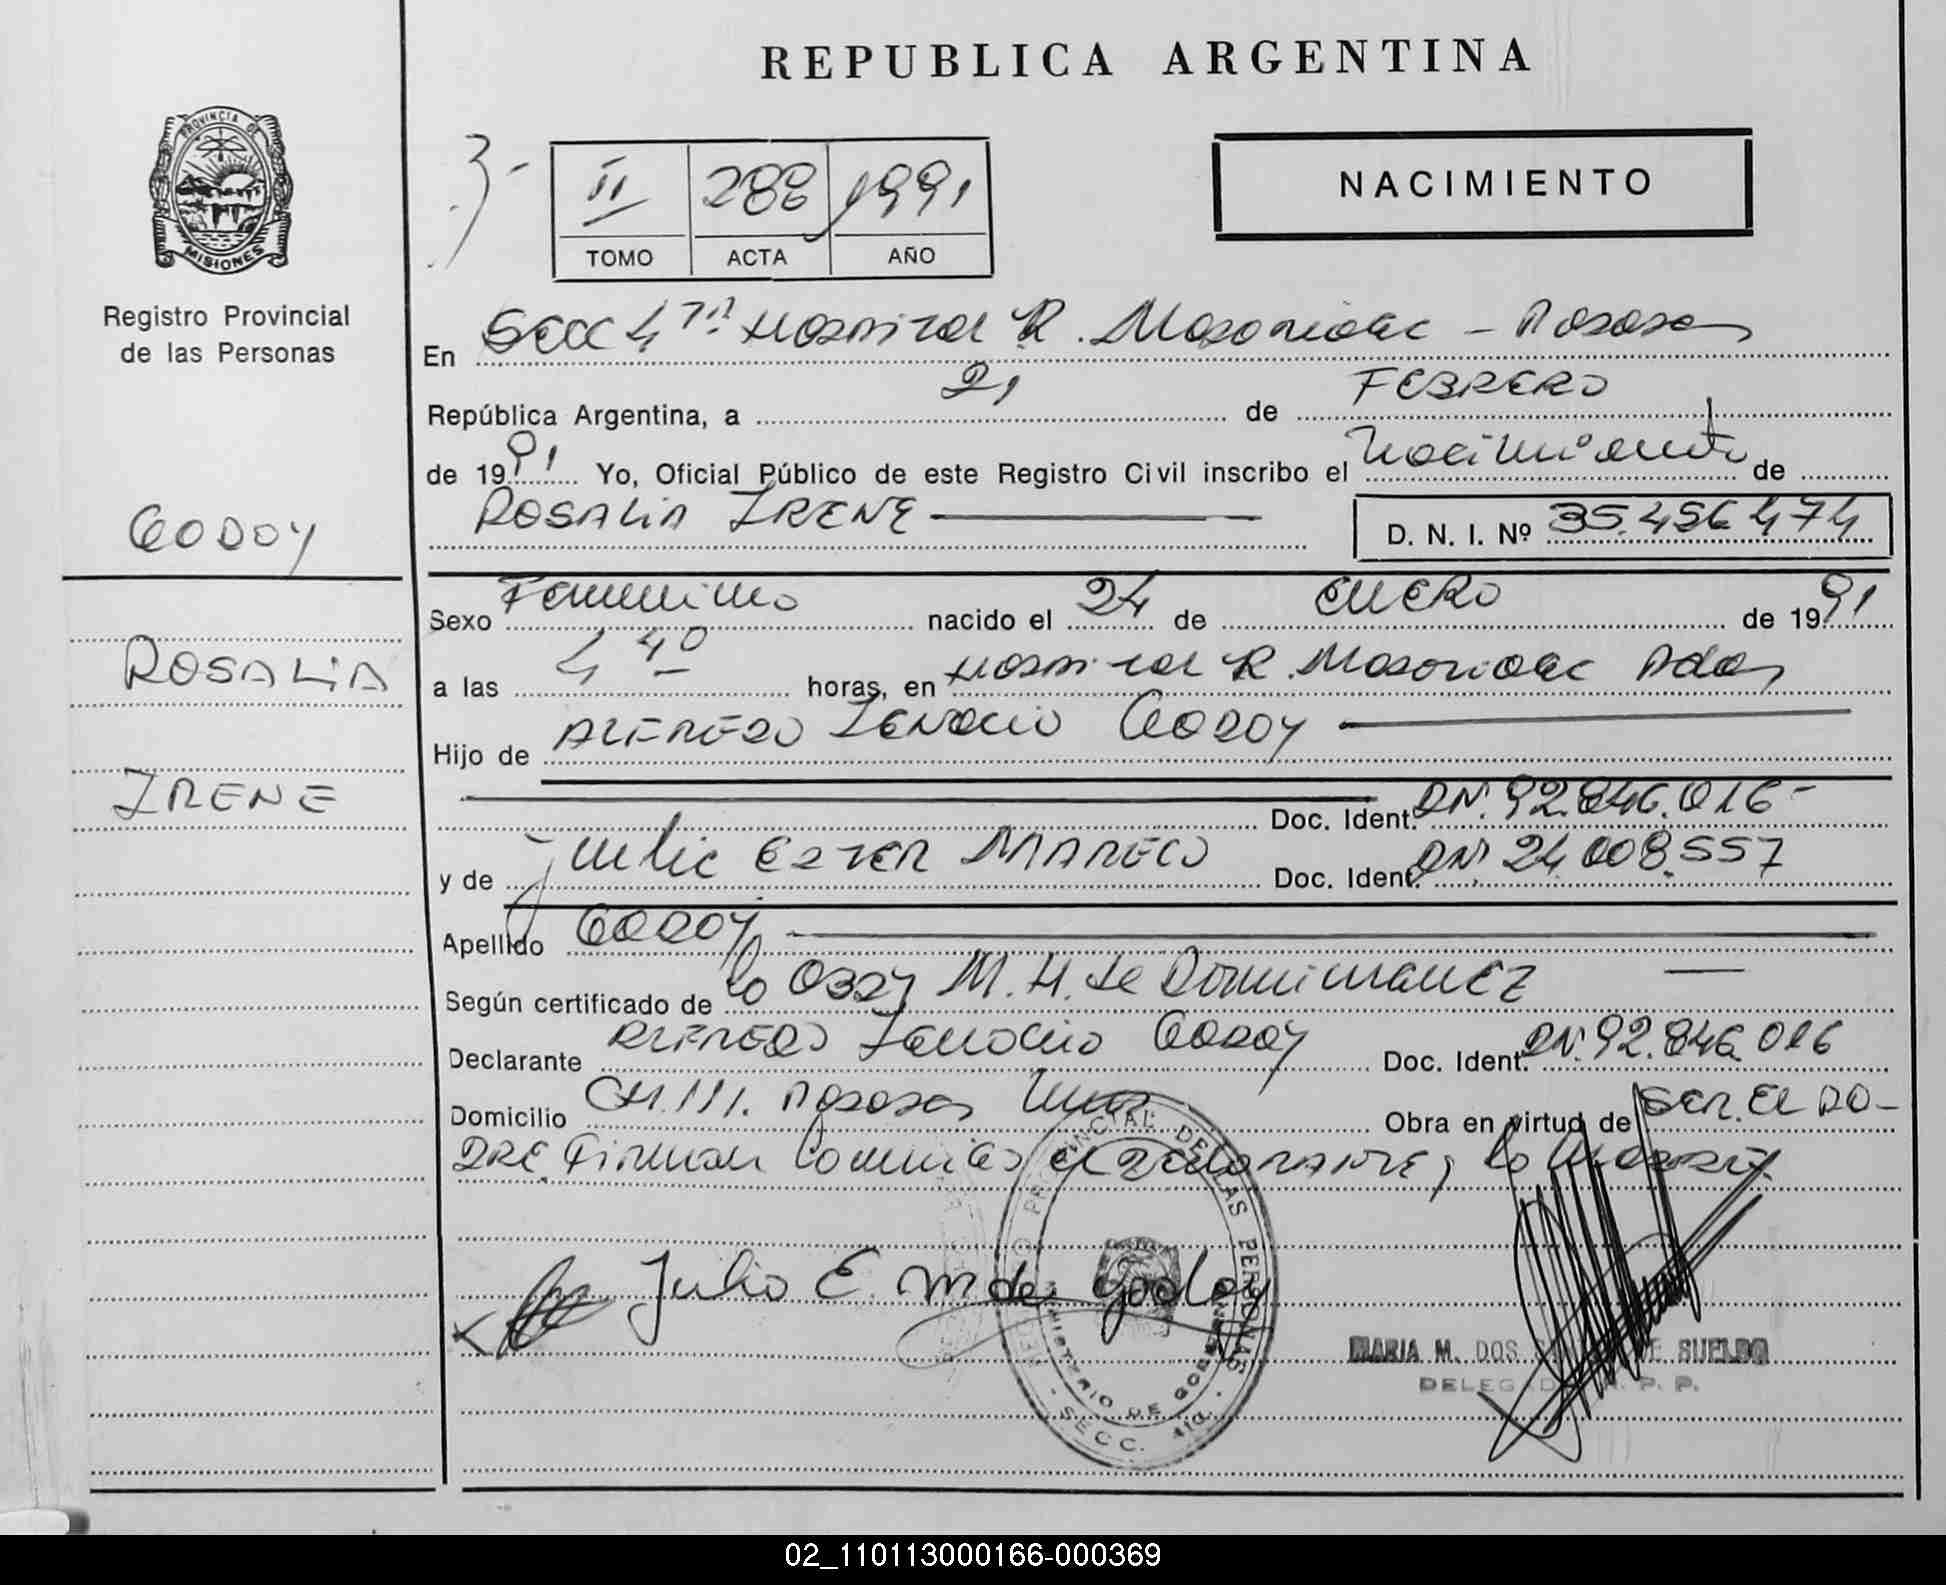 REPUBLICA ARGENTINA
PROVINCIA DE
MISIONES
Registro Provincial
de las Personas
3-
II 288 1991
TOMO ACTA AÑO
NACIMIENTO
En Secc 4ta Hospital R. Madariaga - Posadas
República Argentina, a 21 de FEBRERO
de 1991 Yo, Oficial Público de este Registro Civil inscribo el Nacimiento de
ROSALIA IRENE
D. N. I. Nº 35.456.474
GODOY
ROSALIA
IRENE
Sexo Femenino nacido el 24 de ENERO de 1991
a las 4 40 horas, en Hospital R. Madariaga Pdas
Hijo de ALFREDO IGNACIO GODOY
Doc. Ident. DNI 92.846.016-
y de Julia ESTER MARECO Doc. Ident. DNI 24.008.557
Apellido GODOY
Según certificado de la Obst M. H. de Dominguez
Declarante ALFREDO Ignacio GODOY Doc. Ident. DNI 92.846.016
Domicilio CH. 111. Posadas Mnes Obra en virtud de SER. EL PA-
DRE Firman conmigo el declarante y la Madre
Julia E. M de Godoy
REGISTRO PROVINCIAL DE LAS PERSONAS
MINISTERIO DE GOBIERNO
SECC. 4ta.
MARIA M. DOS DE SUELDO
DELEGADA R. P. P.
02_110113000166-000369